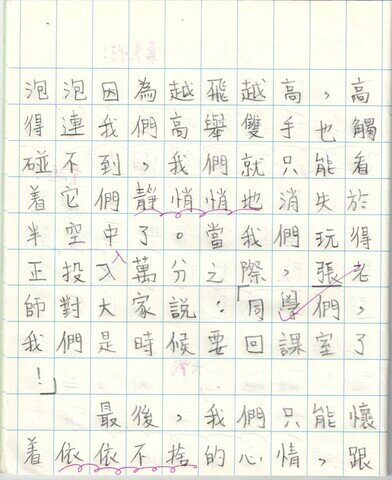 泡泡因為越飛越高，高
得連我們高舉雙手也觸
碰不到，我們就只能看
着它們靜悄悄地消失於
半空中了。當我們玩得
正投入萬分之際，張老
師對大家說：「同學們，
我們是時候要回課室了
！」
最後，我們只能懷
着依依不捨的心情，跟